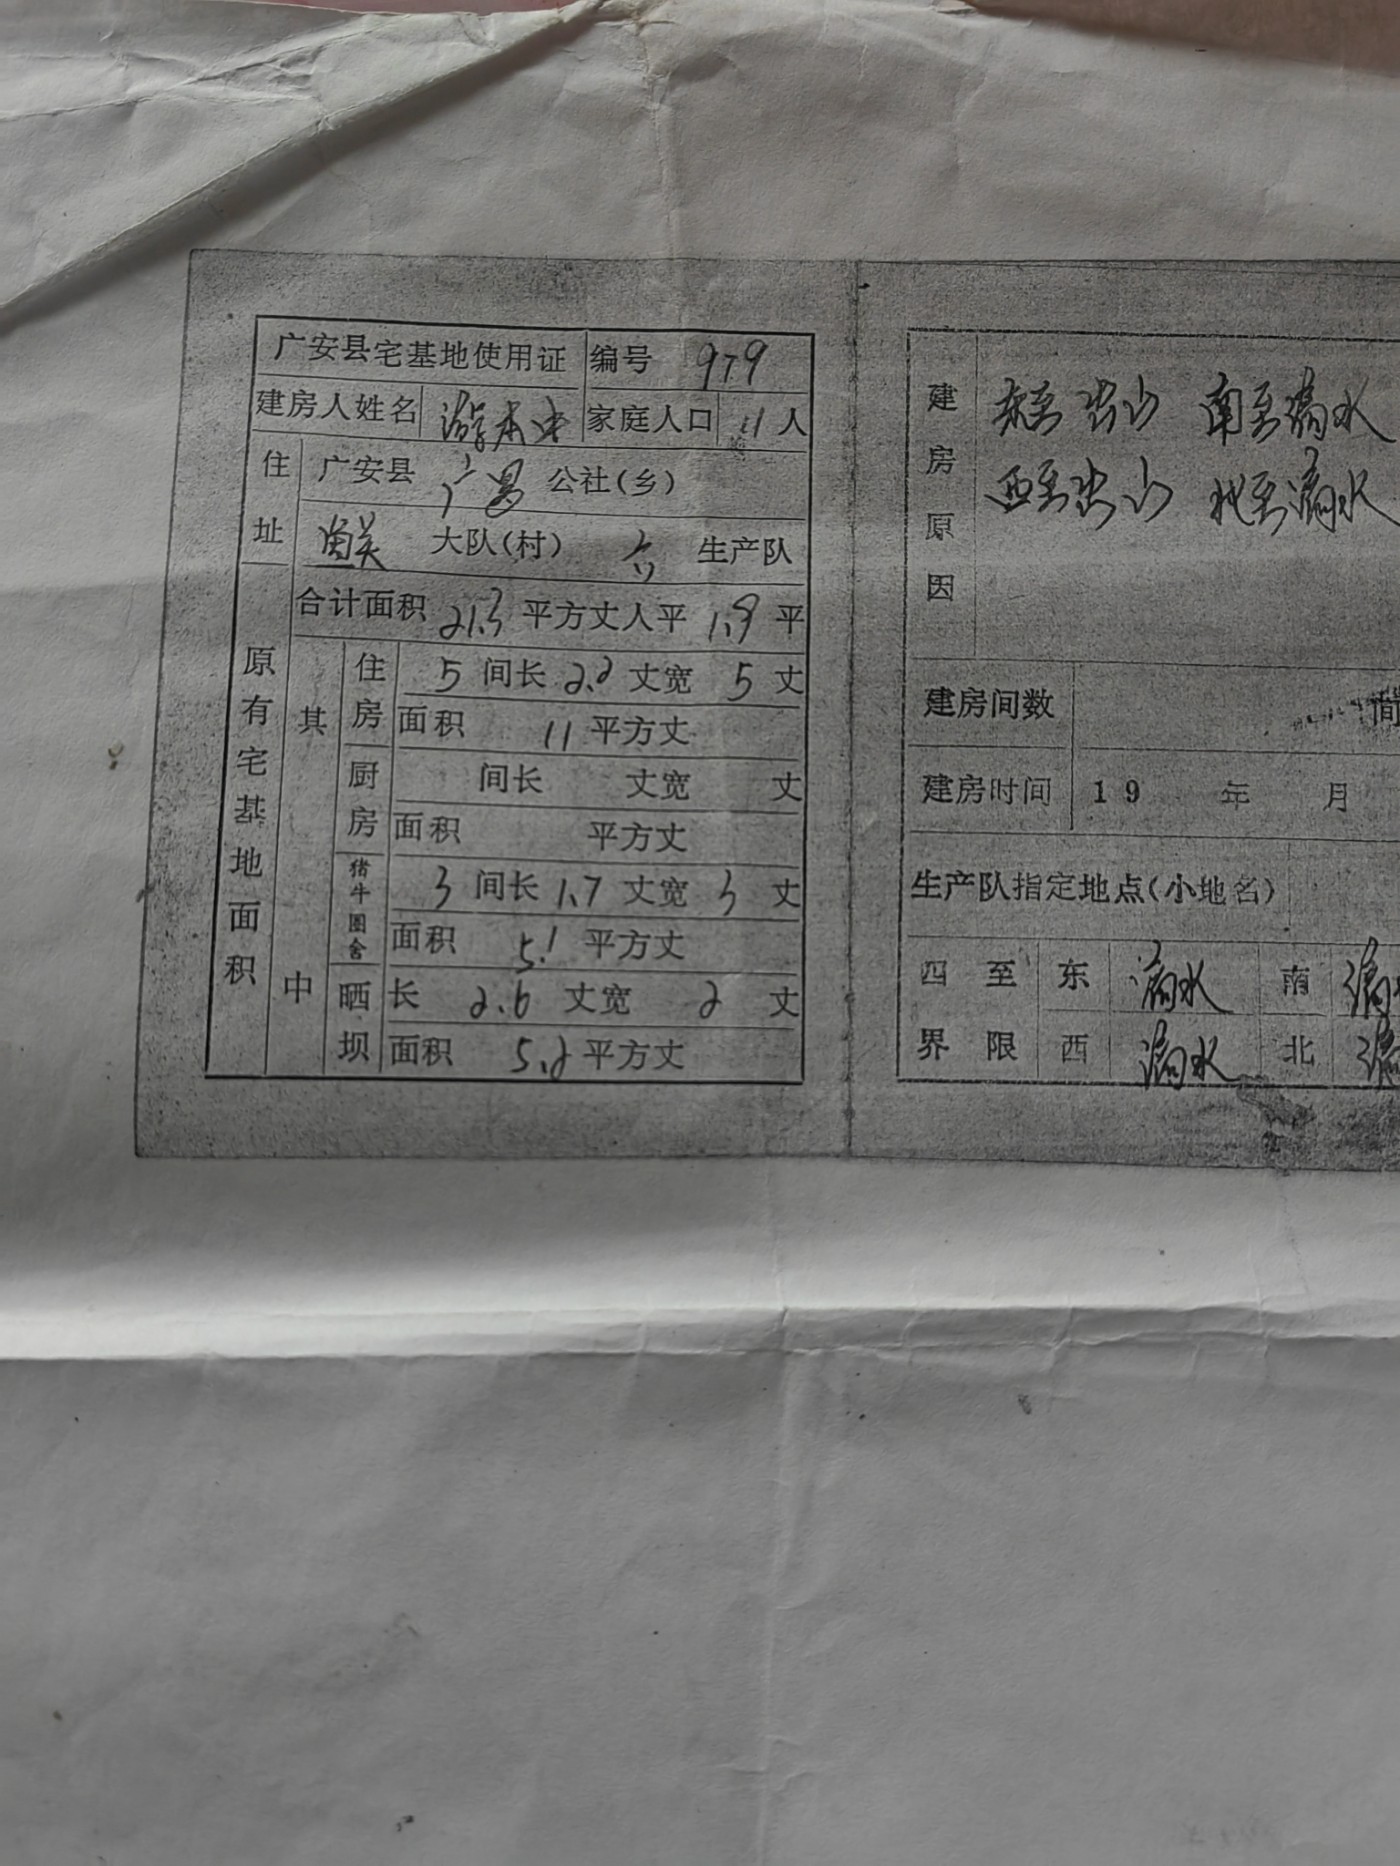 广安县宅基地使用证 编号 979
建房人姓名 游本中 家庭人口 11人
住址 广安县 广罗 公社(乡)
大队(村) 六 生产队
原有宅基地面积
合计面积 21.3 平方丈人平 1.9 平
其中
住房 5 间长 2.2 丈宽 5 丈
面积 11 平方丈
厨房 间长 丈宽 丈
面积 平方丈
猪牛圈舍 3 间长 1.7 丈宽 3 丈
面积 5.1 平方丈
晒坝 长 2.6 丈宽 2 丈
面积 5.2 平方丈
建房原因 东至 出山 南至滴水
西至出山 北至滴水
建房间数 间
建房时间 19 年 月
生产队指定地点(小地名)
四至界限 东 滴水 南 滴
西 滴水 北 滴